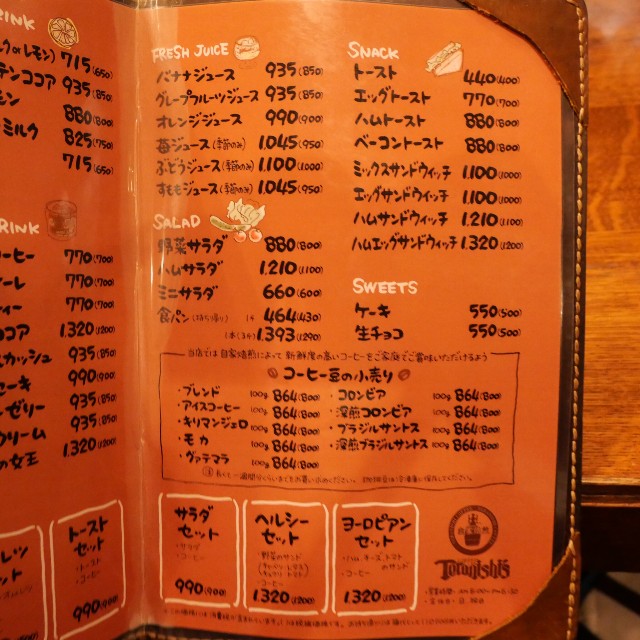 RINK
レモン) 715(650)
テンココア 935(850)
880(800)
ミルク 825(750)
715(650)
RINK
コーヒー 770(700)
770(700)
ティー 770(700)
ココア 1.320(1200)
カッシュ 935(850)
ーキ 990(900)
ゼリー 935(850)
クリーム 935(850)
の女王 1.320(1200)
セット
トースト
セット
・トースト
・コーヒー
990(900)
FRESH JUICE
バナナジュース 935(850)
グレープフルーツジュース 935(850)
オレンジジュース 990(900)
苺ジュース(季節のみ) 1.045(950)
ぶどうジュース(季節のみ) 1.100(1000)
すももジュース(季節のみ) 1.045(950)
SALAD
野菜サラダ 880(800)
ハムサラダ 1.210(1100)
ミニサラダ 660(600)
食パン(持ち帰り) 1斤 464(430)
1本(3斤) 1.393(1290)
SNACK
トースト 440(400)
エッグトースト 770(700)
ハムトースト 880(800)
ベーコントースト 880(800)
ミックスサンドウィッチ 1.100(1000)
エッグサンドウィッチ 1.100(1000)
ハムサンドウィッチ 1.210(1100)
ハムエッグサンドウィッチ 1.320(1200)
SWEETS
ケーキ 550(500)
生チョコ 550(500)
当店では自家焙煎によって新鮮度の高いコーヒーをご家庭でご賞味いただけるよう
コーヒー豆の小売り
・ブレンド 100g 864(800)
・アイスコーヒー 100g 864(800)
・キリマンジェロ 100g 864(800)
・モカ 100g 864(800)
・ヴァテマラ 100g 864(800)
・コロンビア 100g 864(800)
・深煎コロンビア 100g 864(800)
・ブラジルサントス 100g 864(800)
・深煎ブラジルサントス 100g 864(800)
サラダ
セット
・サラダ
・コーヒー
990(900)
ヘルシー
セット
・野菜のサンド
・コーヒー
1.320(1200)
ヨーロピアン
セット
・ハム、チーズ、トマト
のサンド
・コーヒー
1.320(1200)